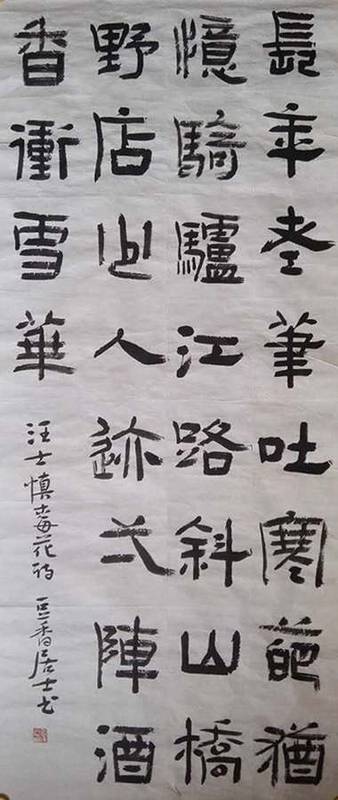 長年老筆吐寒葩猶
憶騎驢江路斜山橋
野店人迹弌陣酒
香衝雪華
汪士慎梅花詩 香居士书